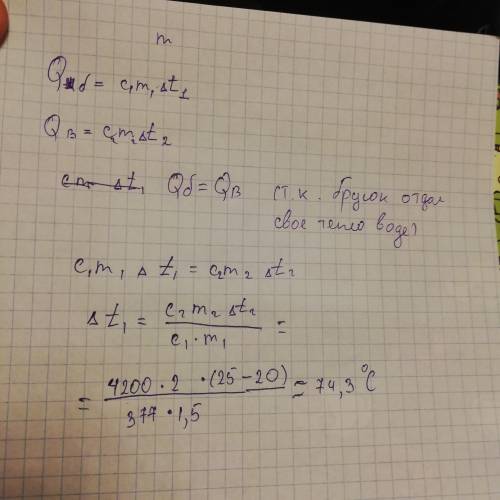 m
Qб = c₁m₁Δt₁
Qв = c₂m₂Δt₂
Qб = Qв (т.к. брусок отдал
свое тепло воде)
c₁m₁Δt₁ = c₂m₂Δt₂
Δt₁ = c₂m₂Δt₂ / c₁·m₁ =
= 4200·2·(25-20) / 377·1,5 = 74,3°C